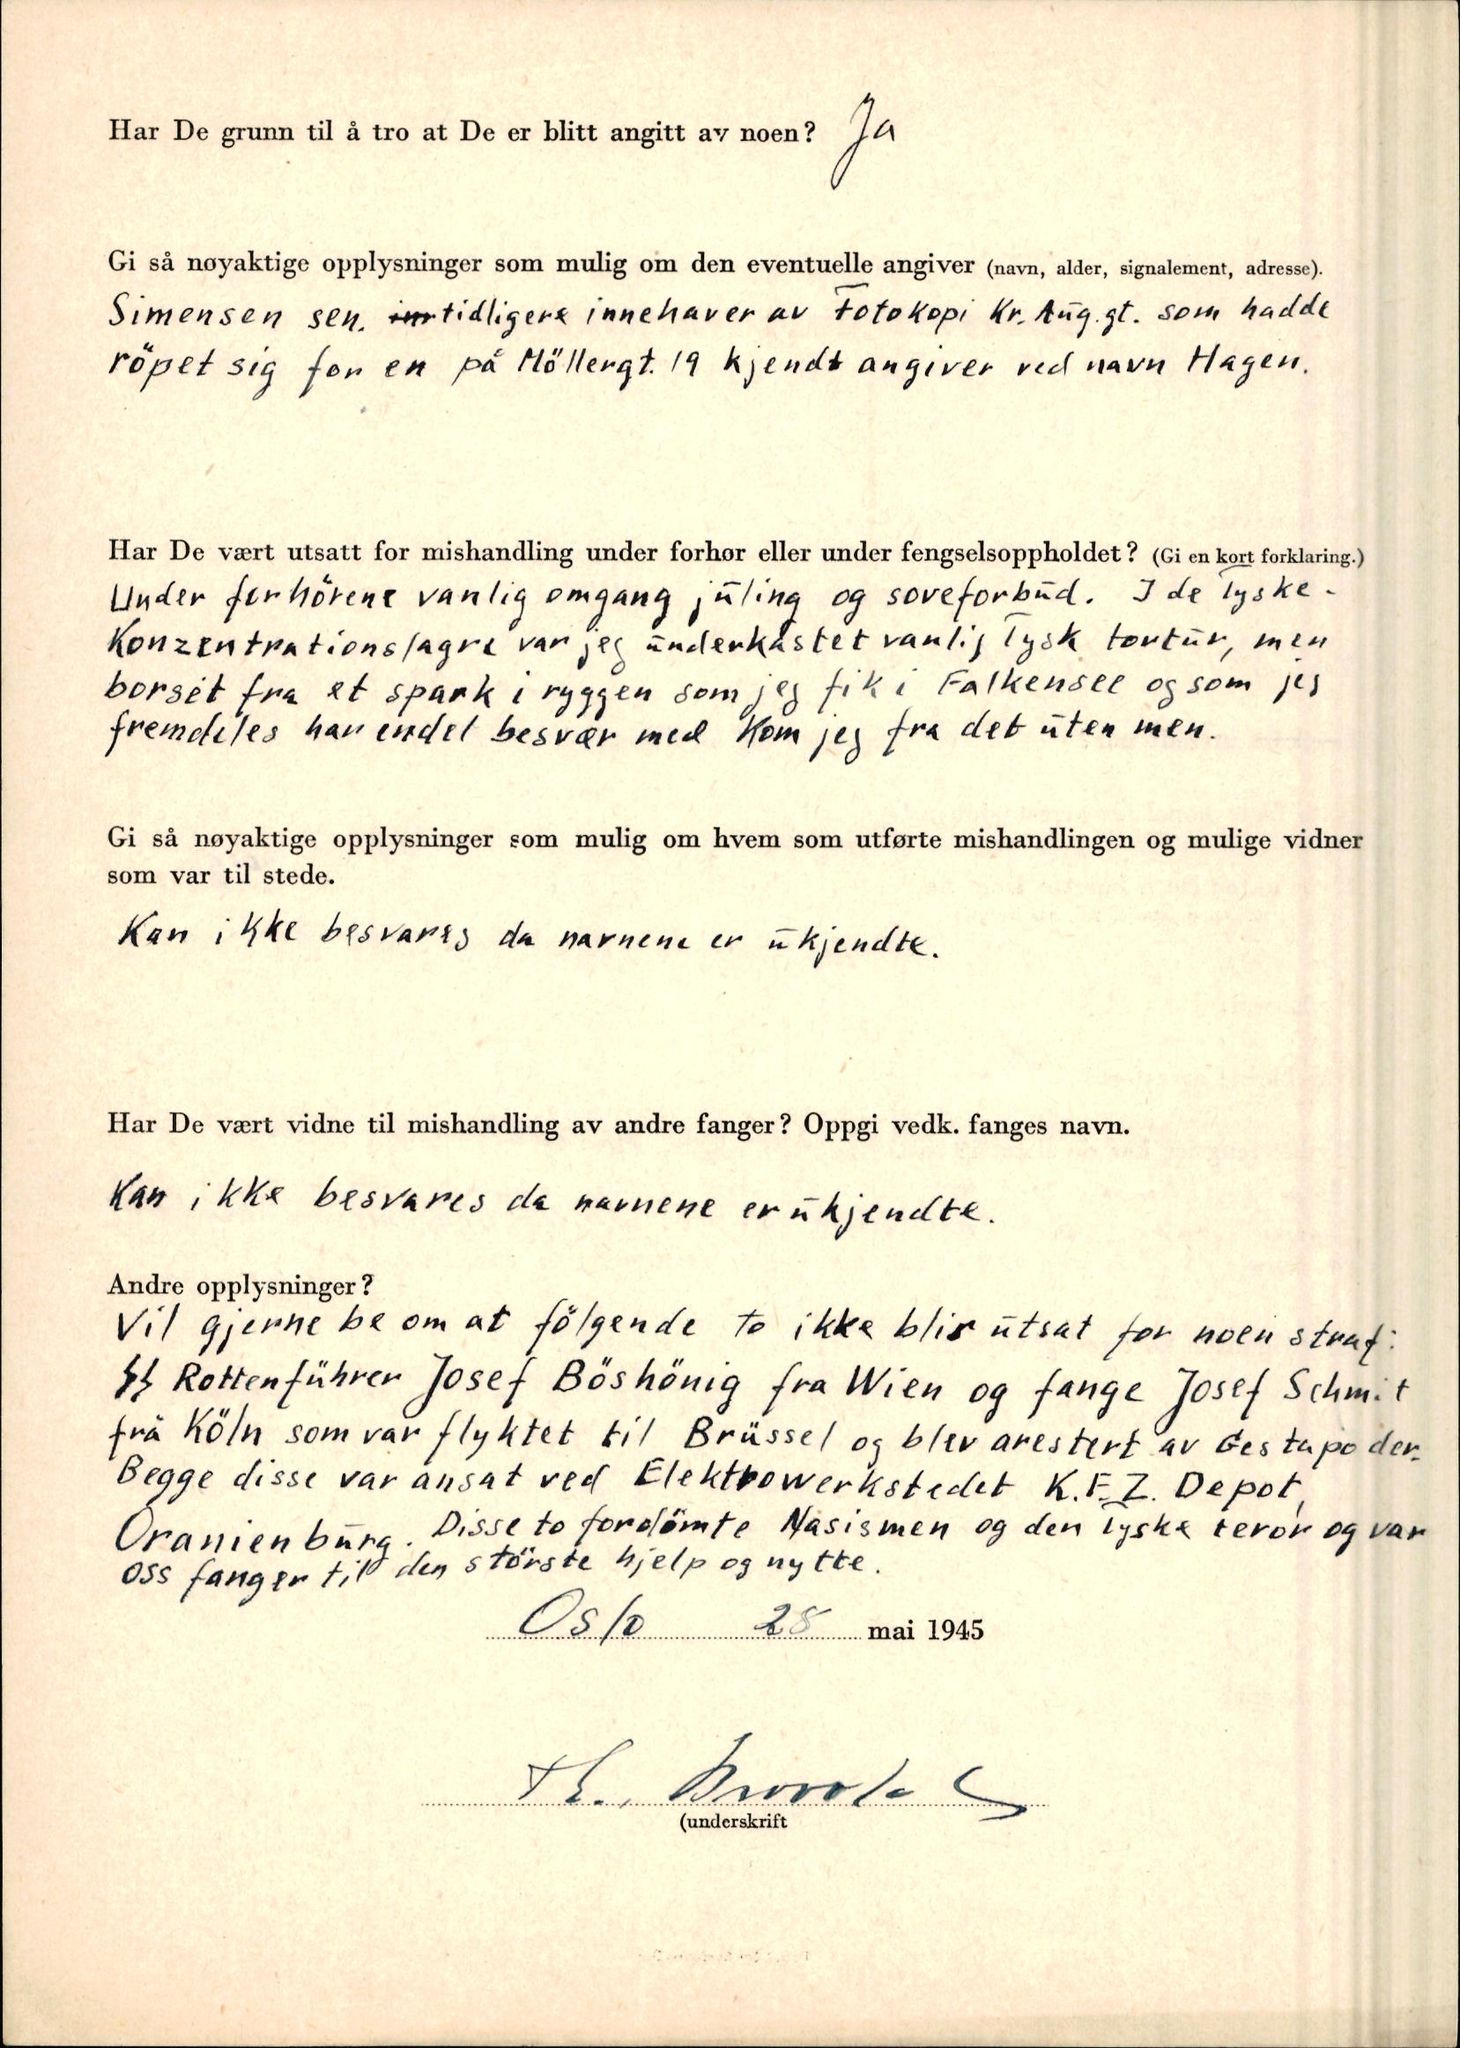 Har De grunn til å tro at De er blitt angitt av noen? Ja
Gi så nøyaktige opplysninger som mulig om den eventuelle angiver (navn, alder, signalement, adresse).
Simensen sen. tidligere innehaver av Fotokopi Kr. Aug. gt. som hadde
röpet sig for en på Möllergt. 19 kjendt angiver ved navn Hagen.
Har De vært utsatt for mishandling under forhør eller under fengselsoppholdet? (Gi en kort forklaring.)
Under forhörene vanlig omgang jūling og soveforbūd. I de Tyske-
Konzentrationslagre var jeg ūnderkastet vanlig Tysk tortūr, men
borset fra et spark i ryggen som jeg fik i Falkensee og som jeg
fremdeles har endel besvær med kom jeg fra det ūten men.
Gi så nøyaktige opplysninger som mulig om hvem som utførte mishandlingen og mulige vidner
som var til stede.
Kan ikke besvares da navnene er ūkjendte.
Har De vært vidne til mishandling av andre fanger? Oppgi vedk. fanges navn.
Kan ikke besvares da navnene er ūkjendte.
Andre opplysninger?
Vil gjerne be om at fölgende to ikke blir ūtsat for noen straf:
SS Rottenführer Josef Böshönig fra Wien og fange Josef Schmit
frå Köln som var flyktet til Brüssel og blev arestert av Gestapo der.
Begge disse var ansat ved Elektrowerkstedet K.F.Z. Depot,
Oranienbūrg. Disse to fordömte Nasismen og den Tyske teror og var
oss fanger til den störste hjelp og nytte.
Oslo 28 mai 1945
Th.
(underskrift